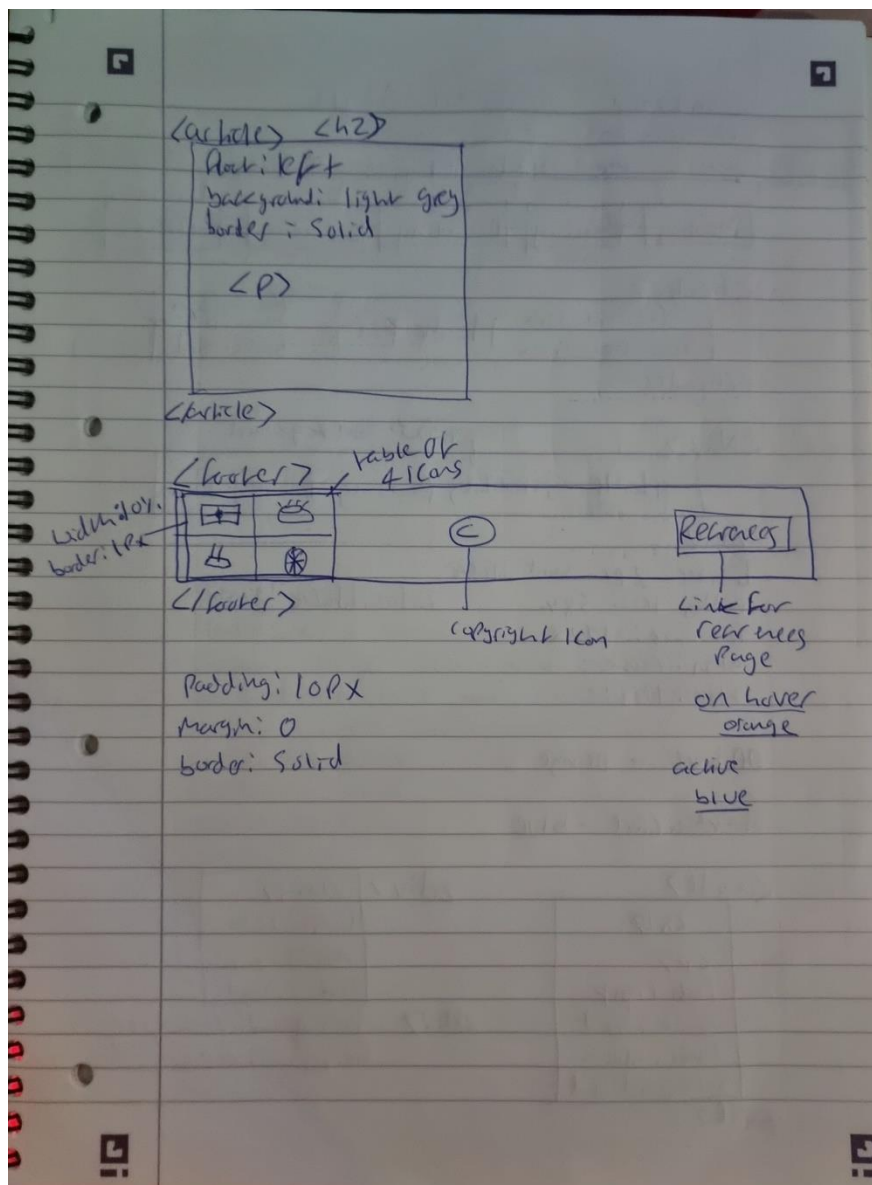 <article> <h2>
float: left
background: light grey
border: Solid
<P>
</article>
<footer>
table of
4 Icons
width: 10%.
border: 1Px
C
</footer>
Copyright Icon
Link for
Page
on hover
orange
active
blue
Padding: 10PX
Margin: 0
border: Solid